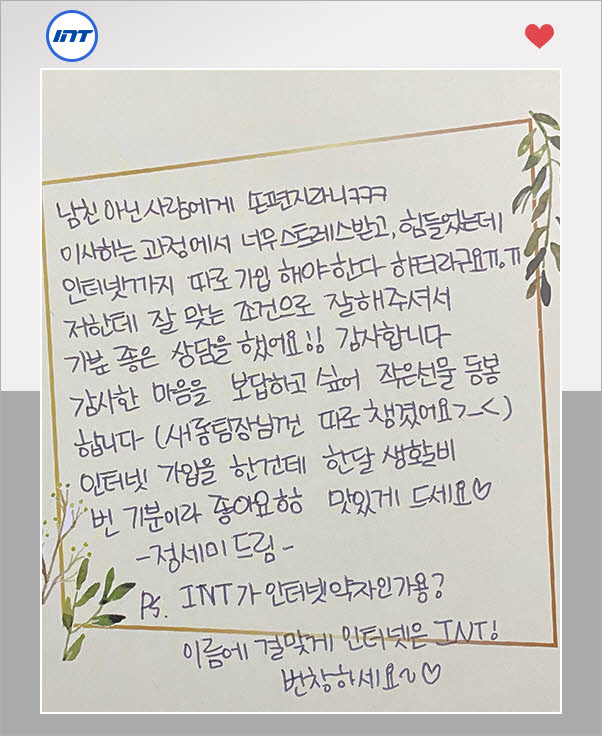 INT
남친 아닌 사람에게 손편지라니ㅋㅋㅋ
이사하는 과정에서 너무 스트레스받고, 힘들었는데
인터넷까지 따로 가입 해야한다 하더라구요ㅠ.ㅠ
저한테 잘 맞는 조건으로 잘해주셔서
기분 좋은 상담을 했어요!! 감사합니다
감사한 마음을 보답하고 싶어 작은선물 동봉
합니다 (새롬팀장님껀 따로 챙겼어요>_<)
인터넷 가입을 한건데 한달 생활비
번 기분이라 좋아요ㅎㅎ 맛있게 드세요♡
-정세미 드림-
Ps. INT가 인터넷약자인가용?
이름에 걸맞게 인터넷은 INT!
번창하세요~♡